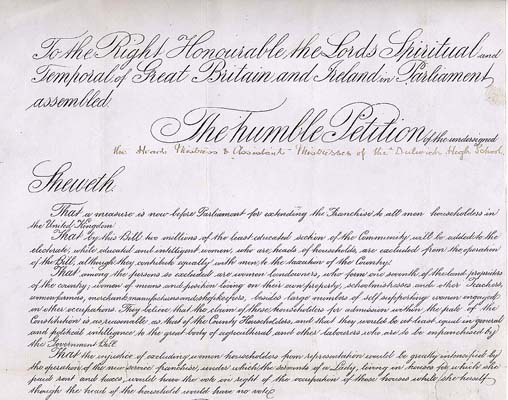 To the Right Honourable the Lords Spiritual and
Temporal of Great Britain and Ireland in Parliament
assembled
The humble Petition of the undersigned
the Head Mistress & Assistant Mistresses of the Dulwich High School
Sheweth
That a measure is now before Parliament for extending the Franchise to all men householders in
the United Kingdom
That by this Bill two millions of the least educated section of the Community will be added to the
electorate, while educated and intelligent women, who are heads of households, are excluded from the operation
of the Bill, although they contribute equally with men to the taxation of the Country.
That among the persons so excluded are women landowners, who form one seventh of the land proprietors
of the country; women of means and position living on their own property, schoolmistresses and other Teachers,
women farmers, merchants, manufacturers and shopkeepers, besides large numbers of self supporting women engaged
in other occupations. They believe that the claim of these householders for admission within the pale of the
Constitution is as reasonable as that of the County Householders, and that they would be at least equal in general
and political intelligence to the great body of agricultural and other labourers who are to be enfranchised by
the Government Bill.
That the injustice of excluding women householders from representation would be greatly intensified by
the operation of the new service franchise, under which the servants of a Lady, living in houses for which she
paid rent and taxes, would have the vote in right of the occupation of those houses while she herself
though the head of the household would have no vote